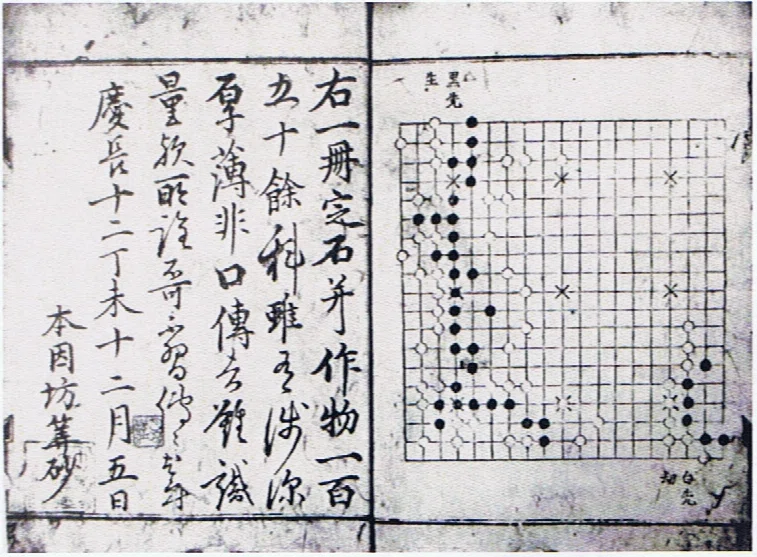 黒先
生
白先
劫
右一冊定石并作物一百
五十餘科雖有浅深
厚薄非口傳者難識
量
慶長十二丁未十二月五日
本因坊筭砂